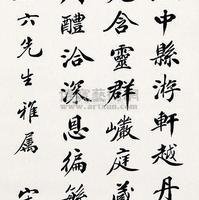 中縣游軒越丹
含靈群巘庭
醴洽深恩徧
六先生雅屬